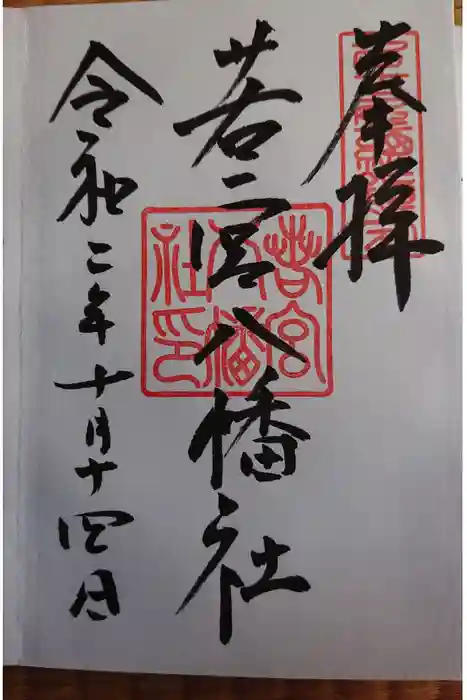 奉拝
若宮八幡社
令和二年十月十四日
若宮
八幡
社印